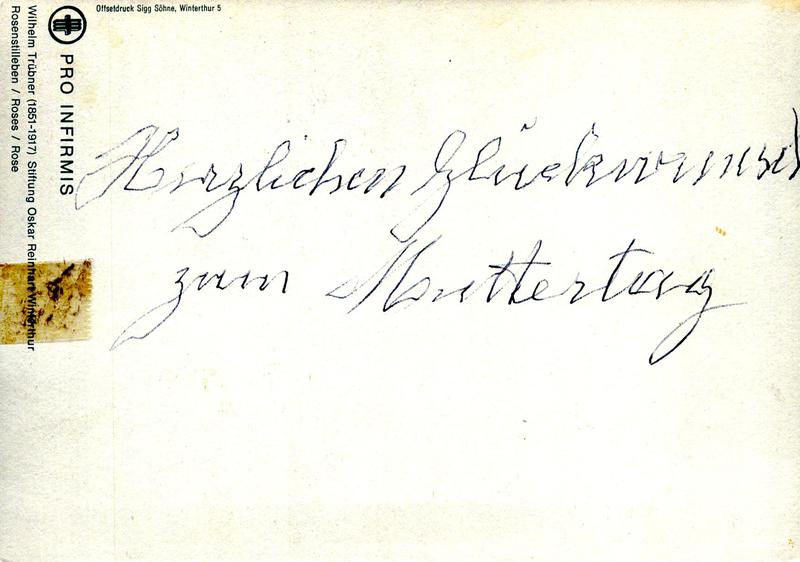 Offsetdruck Sigg Söhne, Winterthur 5
PRO INFIRMIS
Wilhelm Trübner (1851-1917) Stiftung Oskar Reinhart Winterthur
Rosenstilleben / Roses / Rose
Herzlichen Glückwunsch
zum Muttertag